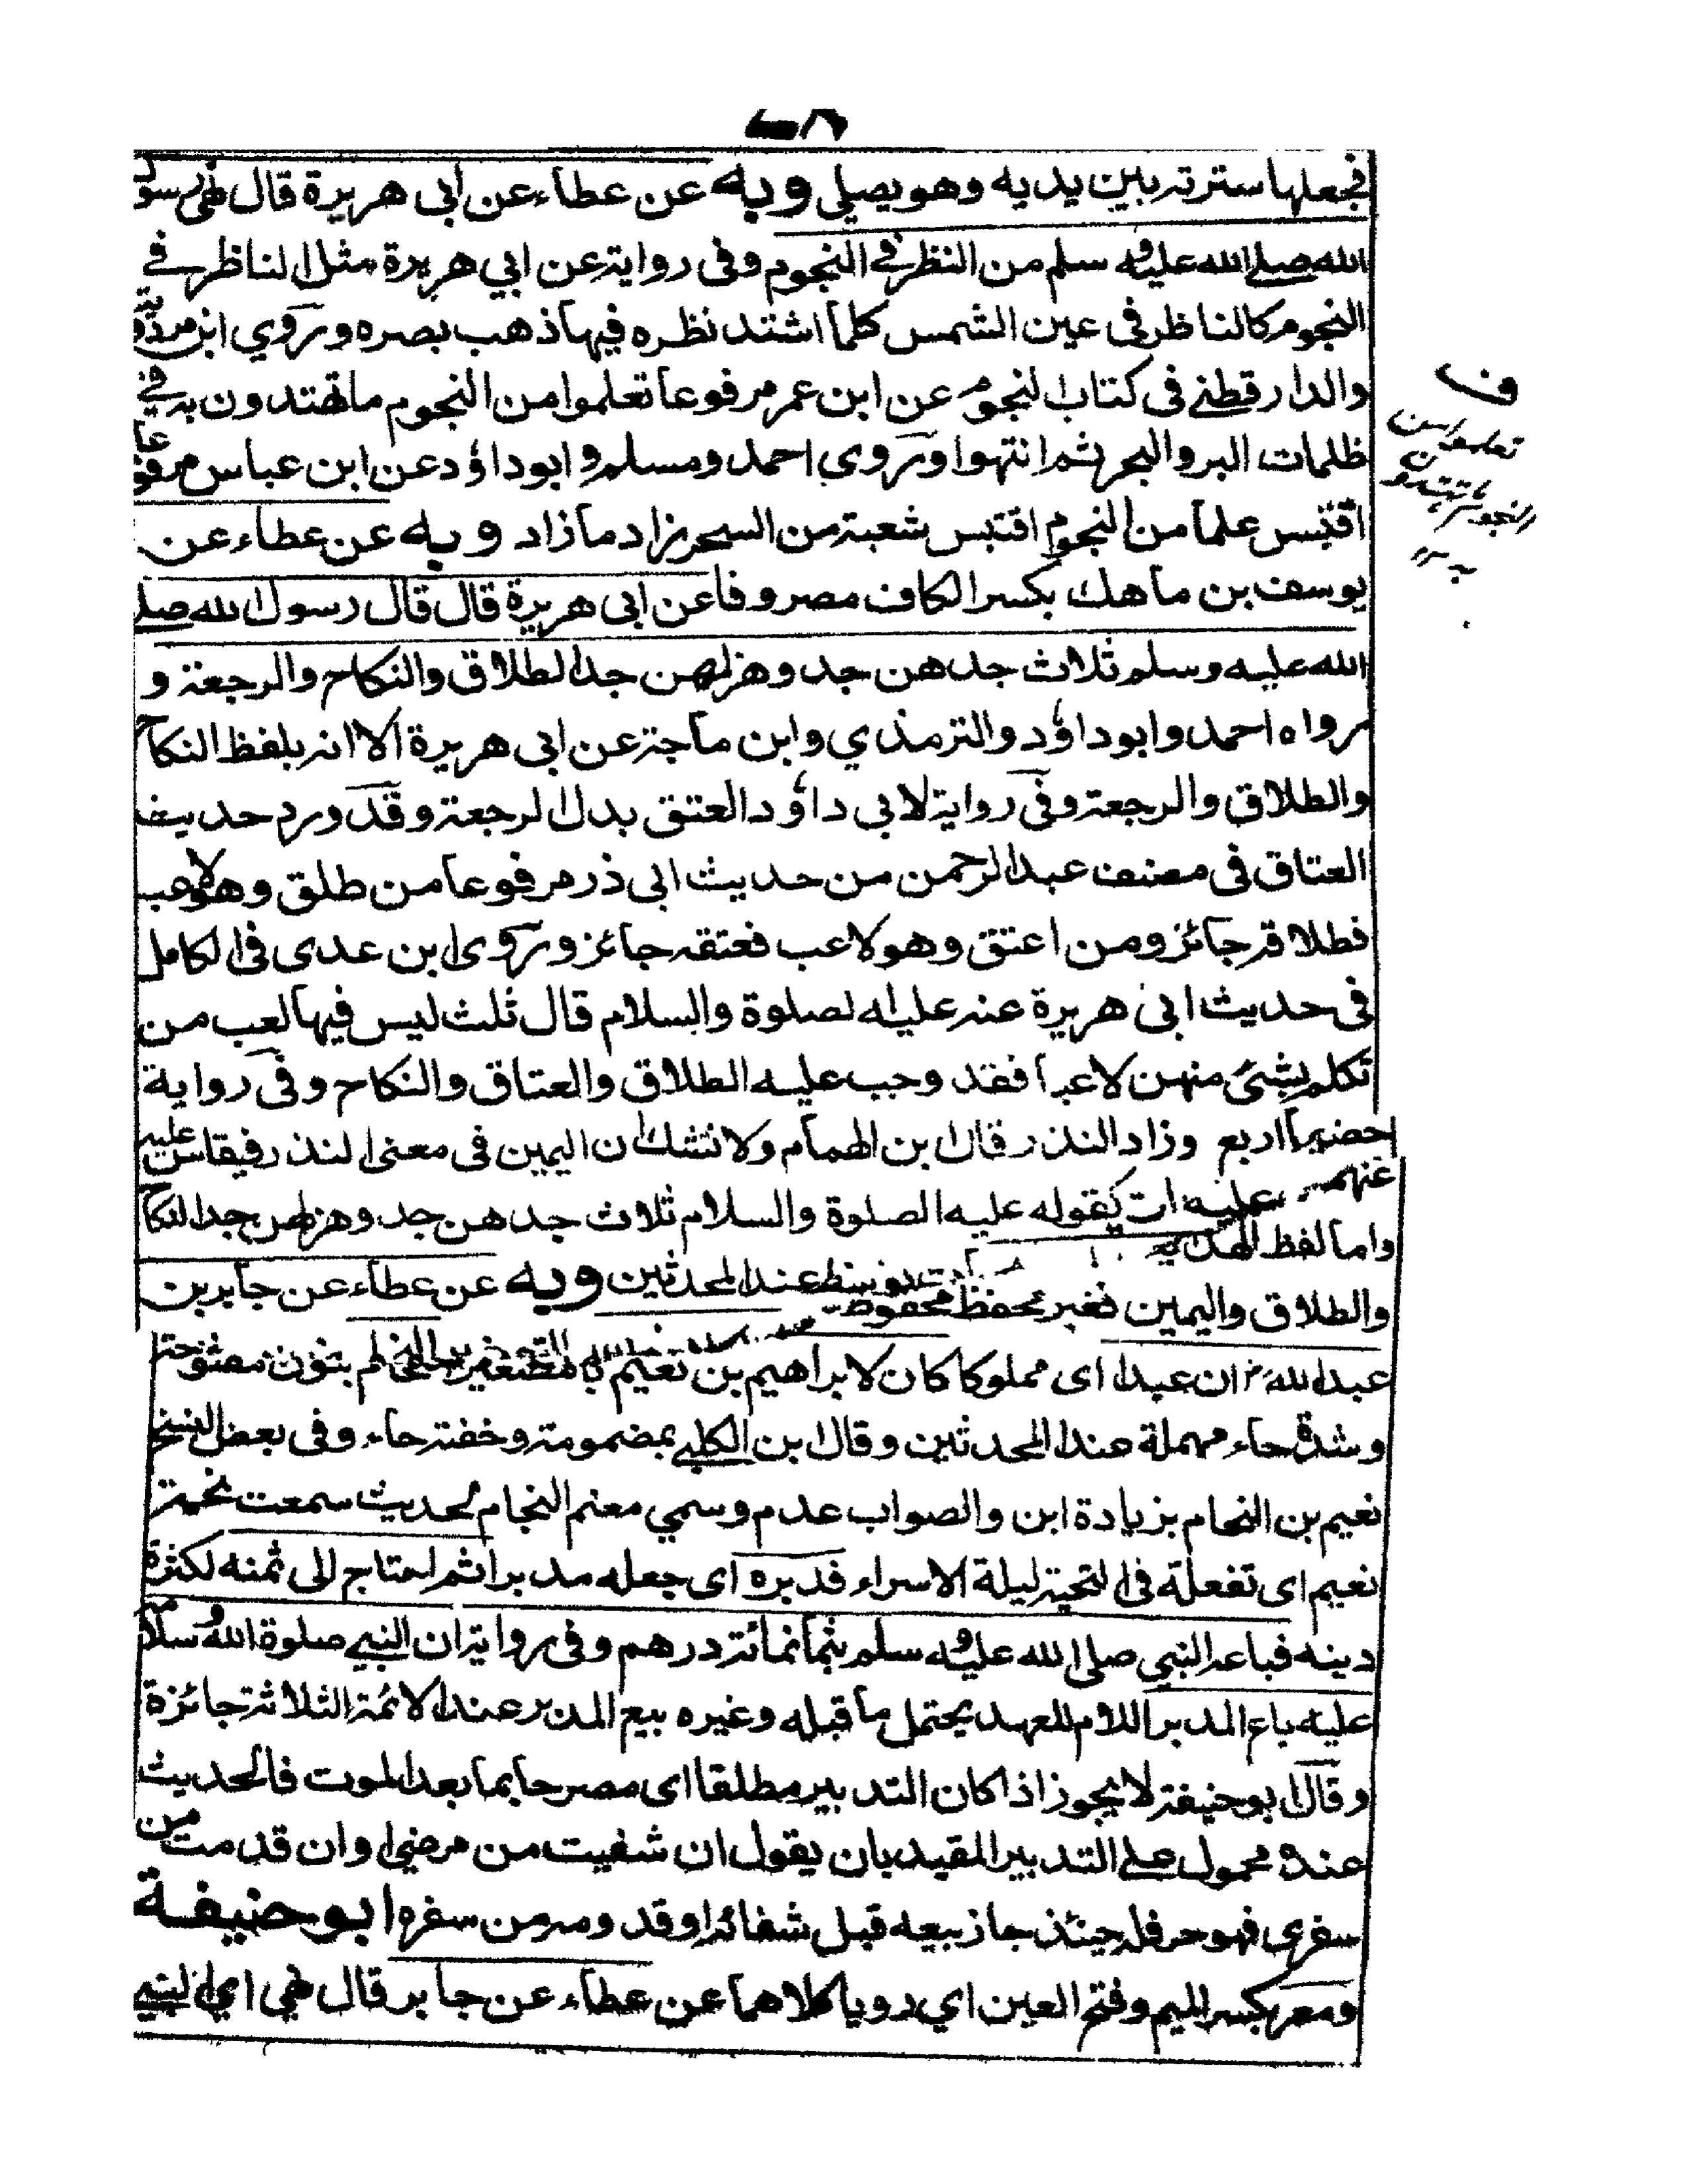 فجعلها سترته بين يديه وهو يصلي وبه عن عطاء عن أبي هريرة قال نهى رسول
الله صلے الله عليه و سلم من النظر في النجوم وفى رواية عن ابي هريرة مثل الناظر في
النجوم كالناظر فى عين الشمس كلما اشتد نظره فيها ذهب بصره وروي ابن مردويه
والدار قطنے فى كتاب النجوم عن ابن عمر مرفوعا تعلموا من النجوم ما تهتدون به في
ظلمات البر والبحر ثم انتهوا وروى احمد ومسلم و ابو داؤد عن ابن عباس مرفوعا
اقتبس علما من النجوم اقتبس شعبة من السحر زاد ما زاد وبه عن عطاء عن
يوسف بن ماهك بكسر الكاف مصروفا عن ابى هريرة قال قال رسول الله صلے
الله عليه وسلم ثلاث جدهن جد وهزلهن جد الطلاق والنكاح والرجعة و
رواه احمد وابو داؤد والترمذي وابن ماجة عن ابى هريرة الا انه بلفظ النكاح
والطلاق والرجعة وفى رواية لابي داؤد العتق بدل الرجعة وقد ورد حديث
العتاق فى مصنف عبد الرحمن من حديث ابى ذر مرفوعا من طلق وهو لاعب
فطلاقه جائز ومن اعتق وهو لاعب فعتقه جائز وروى ابن عدى فى الكامل
فى حديث ابى هريرة عنه عليه الصلوة والسلام قال ثلث ليس فيها لعب من
تكلم بشئ منهن لاعبا فقد وجب عليه الطلاق والعتاق والنكاح وفى رواية
اربع وزاد النذر قال ابن الهمام ولا نشك ان اليمين فى معنى النذر فيقاس عليه
عنهم عليه ات كقوله عليه الصلوة والسلام ثلاث جدهن جد وهزلهن جد النكاح
واما لفظ
والطلاق واليمين فغير محفوظ عند المحدثين وبه عن عطاء عن جابر بن
عبد الله ان عبدا اى مملوكا كان لابراهيم بن نعيم بنون مفتوحة
وشدة حاء مهملة عند المحدثين وقال ابن الكلبے بمضمومة وخفتة حاء وفى بعض النسخ
نعيم بن النحام بزيادة ابن والصواب عدم وسمي معنم النحام لحديث سمعت نحمة
نعيم اى تفعلة فى التحية ليلة الاسراء فدبره اى جعله مدبرا ثم احتاج الى ثمنه لكثرة
دينه فباعه النبي صلى الله عليه و سلم بثمانمائة درهم وفى رواية ان النبے صلوة الله و سلامه
عليه باع المدبر اللام للعهد يحتمل ما قبله وغيره بيع المدبر عند الائمة الثلاثة جائزة
وقال ابو حنيفة لا يجوز اذا كان التدبير مطلقا اى مصرحا بما بعد الموت فالحديث
عنده محمول علے التدبير المقيد بان يقول ان شفيت من مرضى او ان قدمت من
سفرى فهو حر فله حينئذ جاز بيعه قبل شفائه او قدومه من سفره ابو حنيفة
ومعر بكسر الميم وفتح العين اي رويا كلاهما عن عطاء عن جابر قال نهي اي النبے
ف